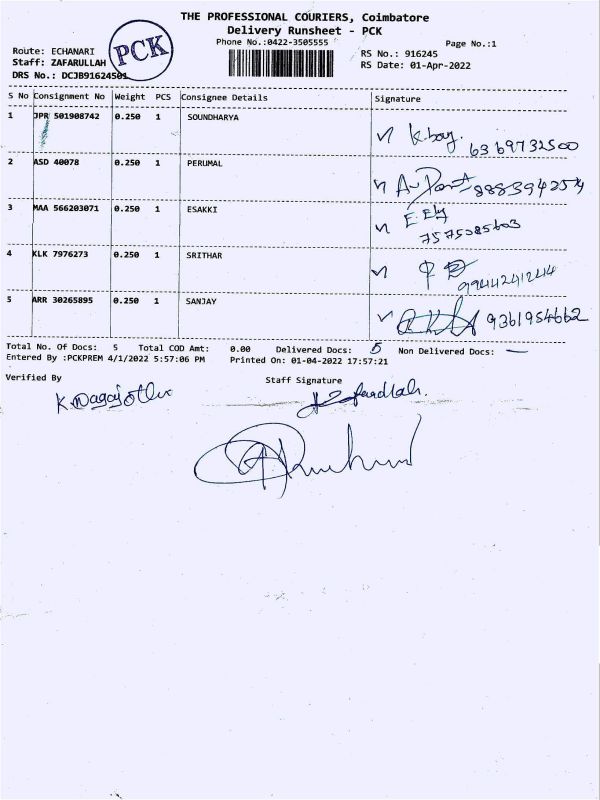 THE PROFESSIONAL COURIERS, Coimbatore
Delivery Runsheet - PCK
Phone No.:0422-3505555
Page No.:1
Route: ECHANARI
RS No.: 916245
Staff: ZAFARULLAH
PCK
RS Date: 01-Apr-2022
DRS No.: DCJB91624501
S No Consignment No Weight PCS Consignee Details Signature
1 JPR 501908742 0.250 1 SOUNDHARYA
6369732500
2 ASD 40078 0.250 1 PERUMAL
3 MAA 566203071 0.250 1 ESAKKI
4 KLK 7976273 0.250 1 SRITHAR
5 ARR 30265895 0.250 1 SANJAY
9361954662
Total No. Of Docs: 5 Total COD Amt: 0.00 Delivered Docs: 5 Non Delivered Docs: —
Entered By :PCKPREM 4/1/2022 5:57:06 PM Printed On: 01-04-2022 17:57:21
Verified By Staff Signature